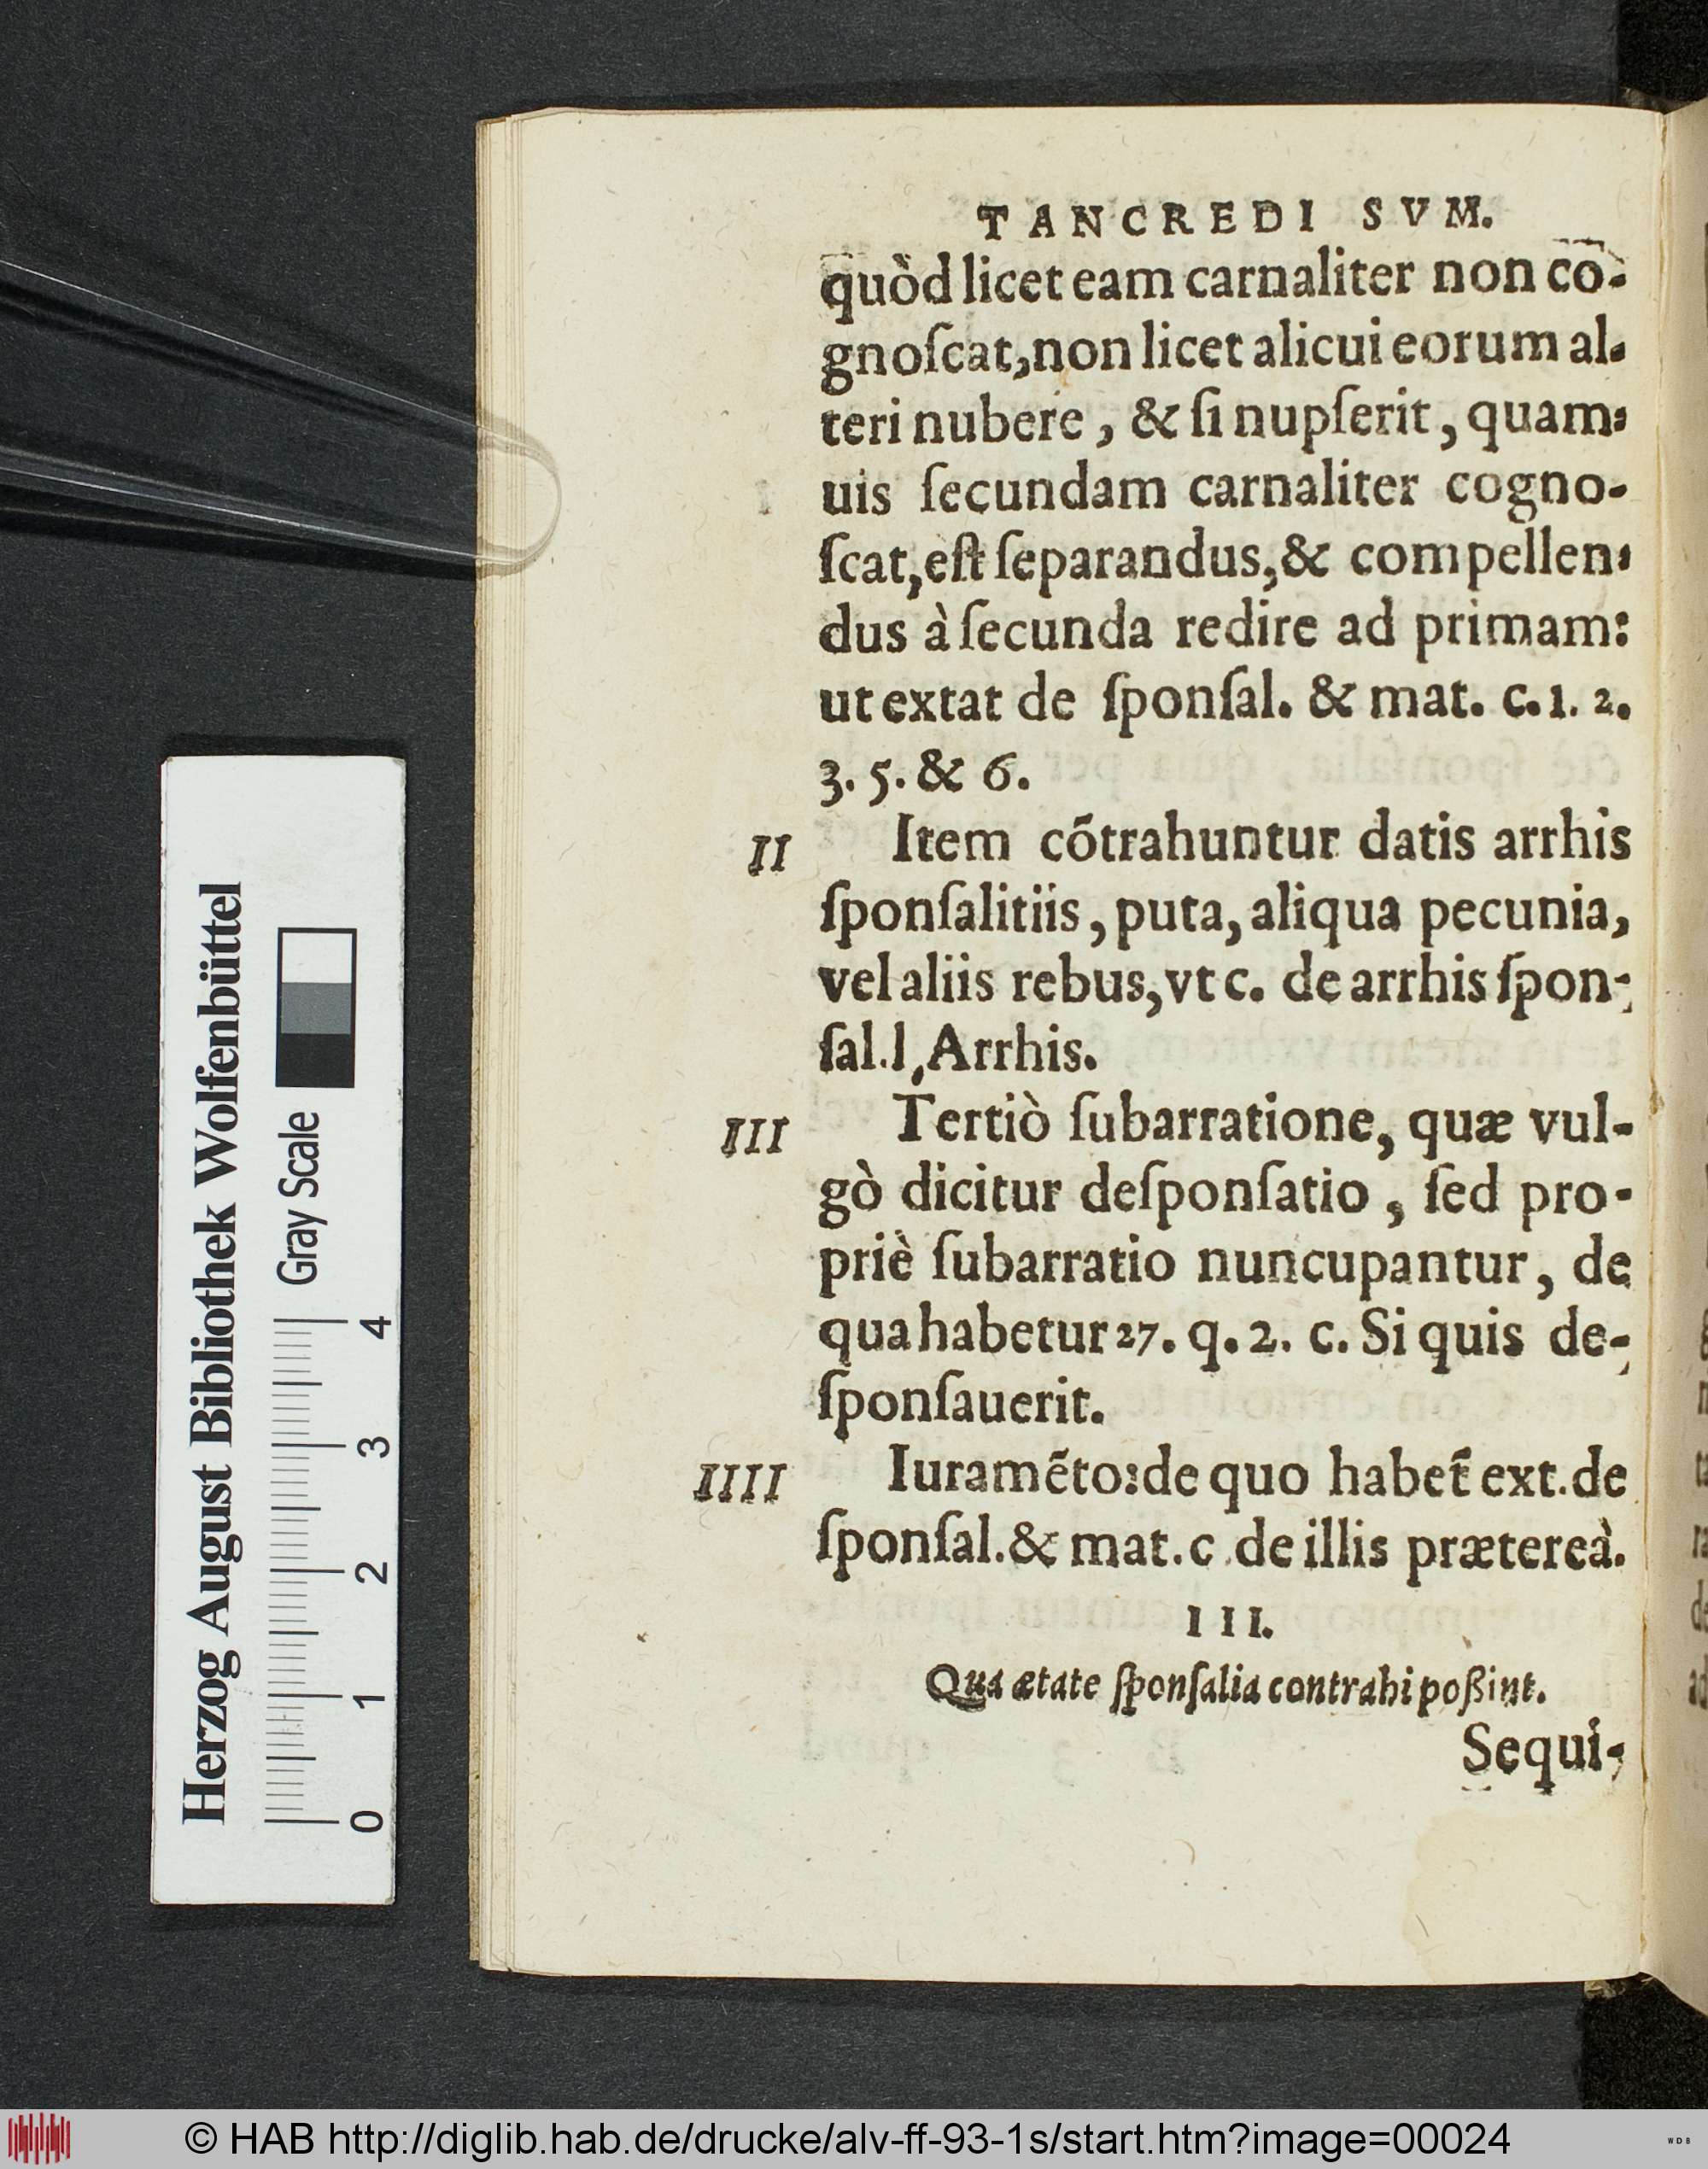 TANCREDI SVM.
quòd licet eam carnaliter non co-
gnoſcat, non licet alicui eorum al-
teri nubere, & ſi nupſerit, quam-
uis ſecundam carnaliter cogno-
ſcat, eſt ſeparandus, & compellen-
dus à ſecunda redire ad primam:
ut extat de ſponſal. & mat. c. 1. 2.
3. 5. & 6.
II Item cõtrahuntur datis arrhis
ſponſalitiis, puta, aliqua pecunia,
vel aliis rebus, vt c. de arrhis ſpon-
ſal. l, Arrhis.
III Tertiò ſubarratione, quæ vul-
gò dicitur deſponſatio, ſed pro-
priè ſubarratio nuncupantur, de
qua habetur 27. q. 2. c. Si quis de-
ſponſauerit.
IIII Iuramẽto: de quo habet̃ ext. de
ſponſal. & mat. c de illis prætereà.
III.
Qua ætate ſponſalia contrahi poßint.
Sequi-
Herzog August Bibliothek Wolfenbüttel
Gray Scale
0 1 2 3 4
© HAB http://diglib.hab.de/drucke/alv-ff-93-1s/start.htm?image=00024
WDB